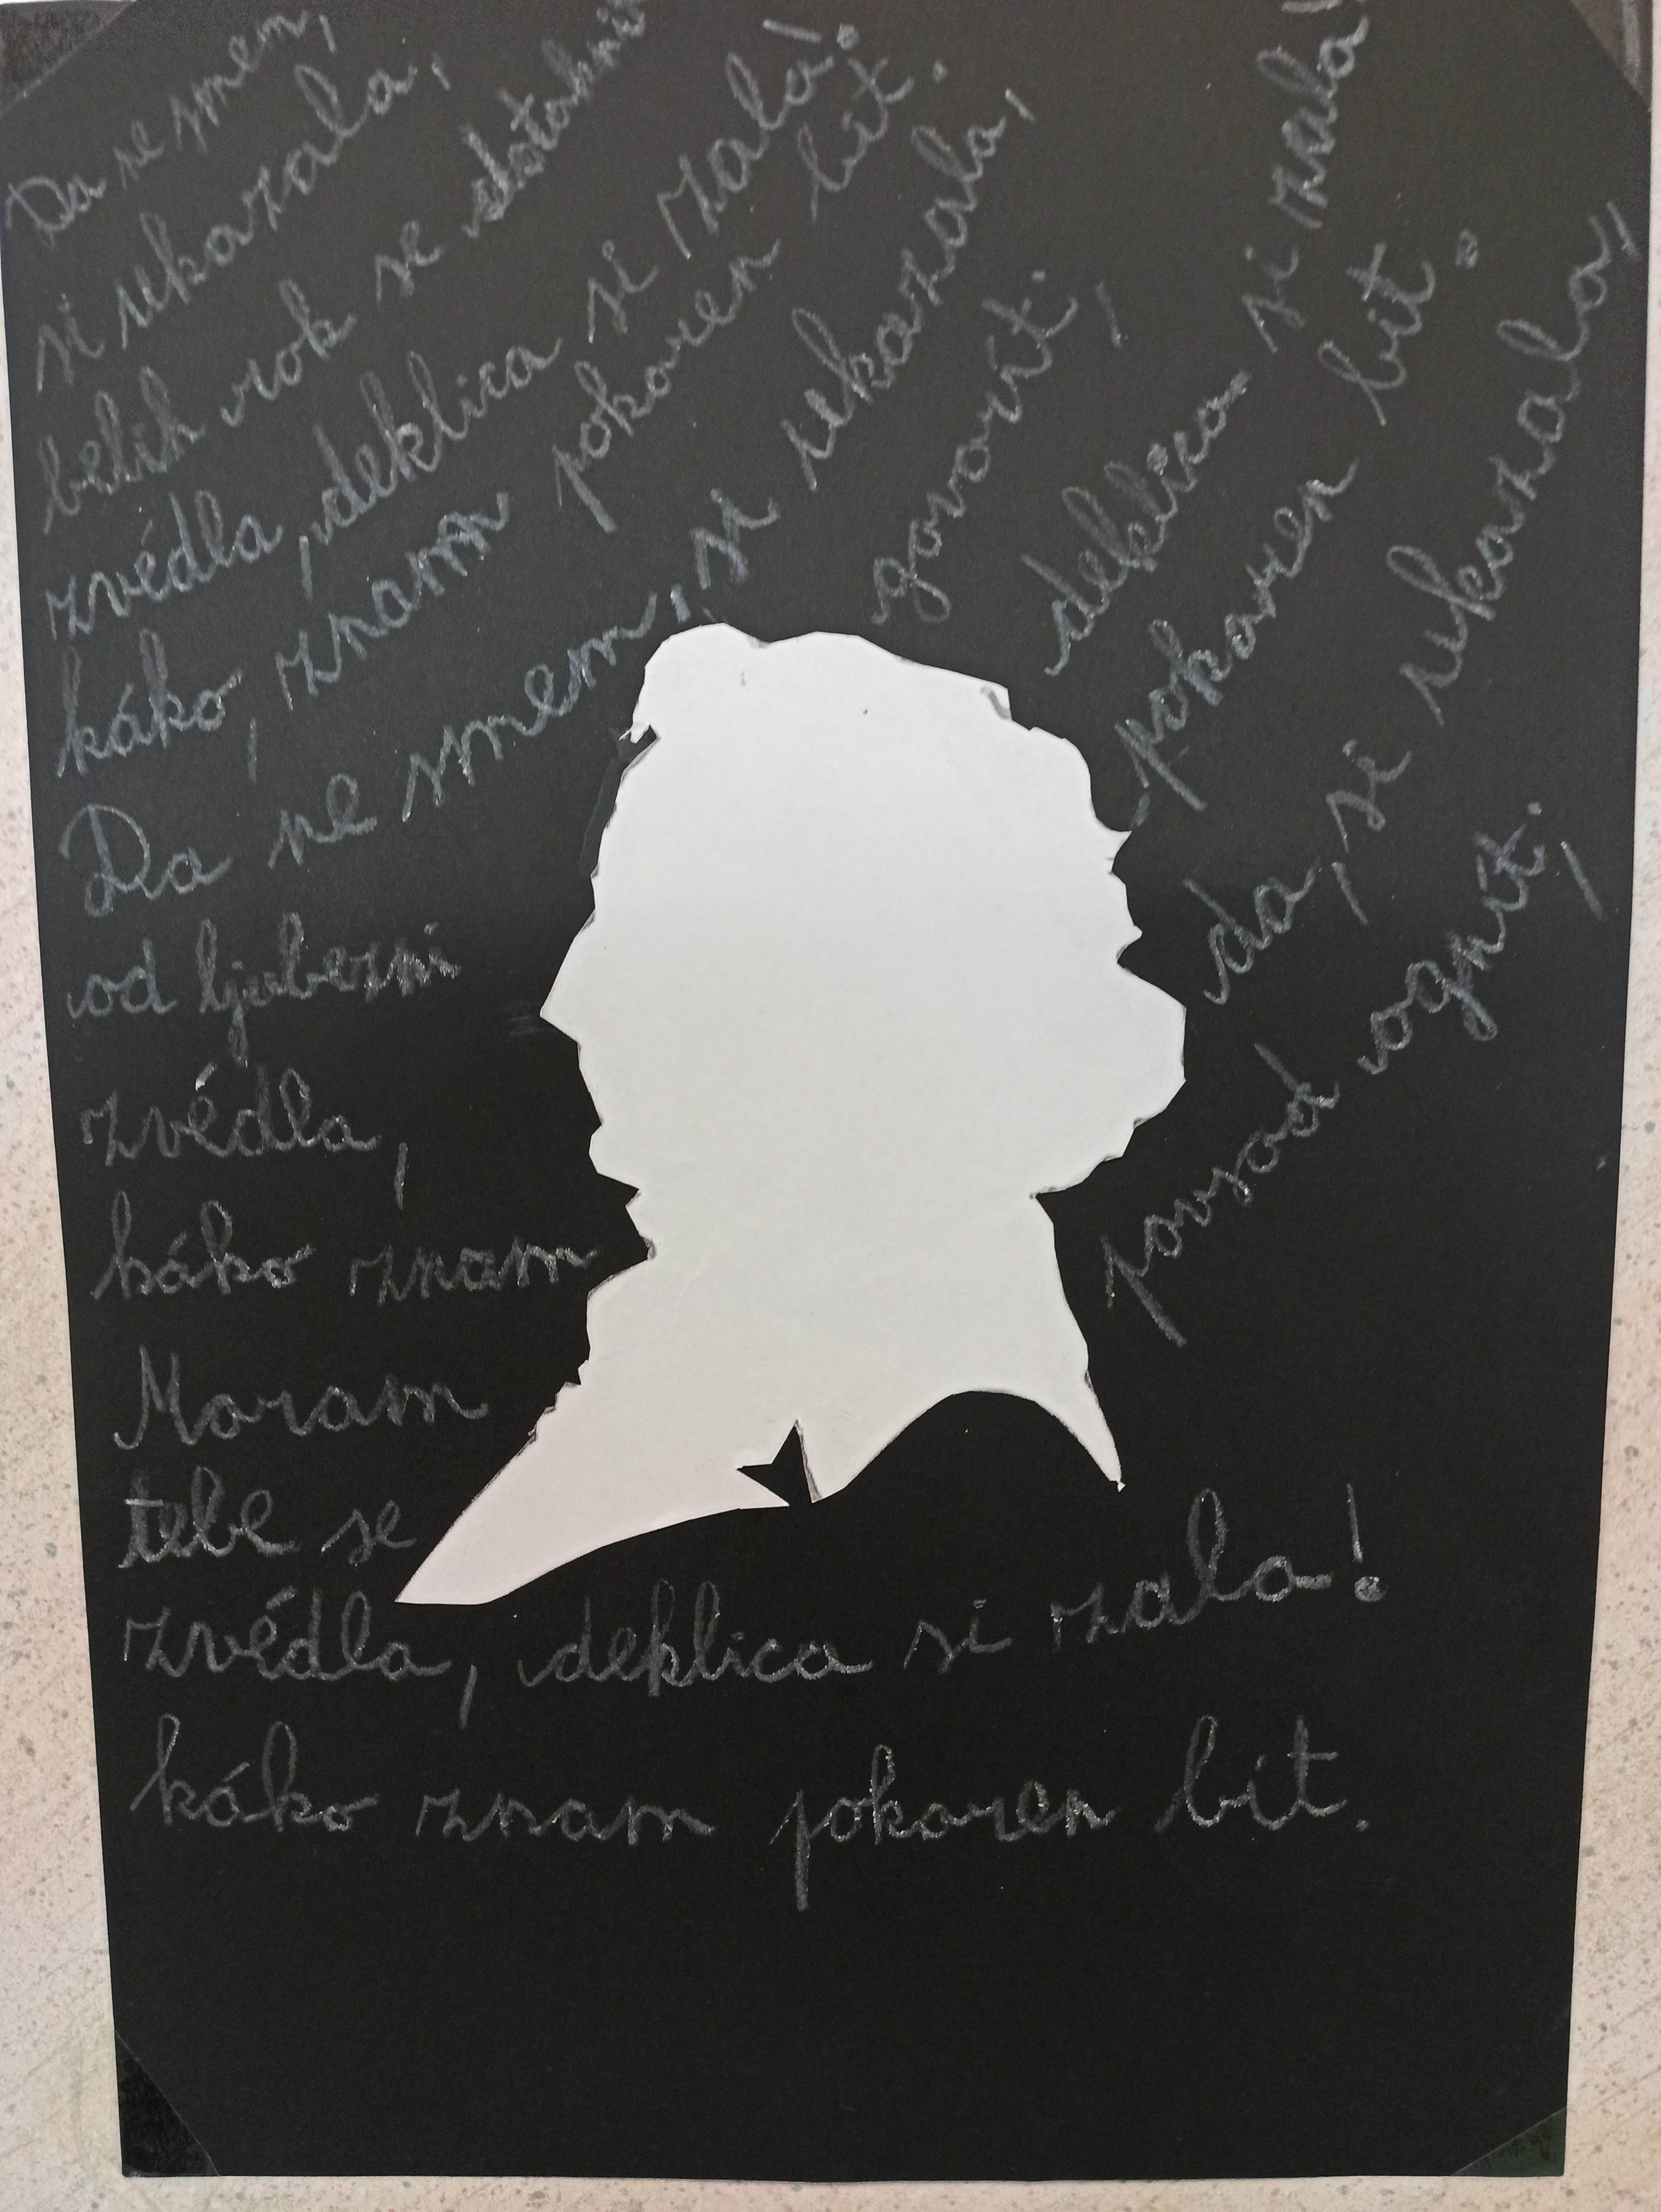 Da ne smem,
si ukazala,
belih rok se dotakniti
zvédla, deklica si zala!
káko, znam pokoren bit.
Da ne smem, si ukazala,
govorit;
deklica si zala!
pokoren bit.
da, si ukazala,
povsod ognit;
od ljubezni
zvédla,
káko znam
Moram
tebe se
zvédla, deklica si zala!
káko znam pokoren bit.